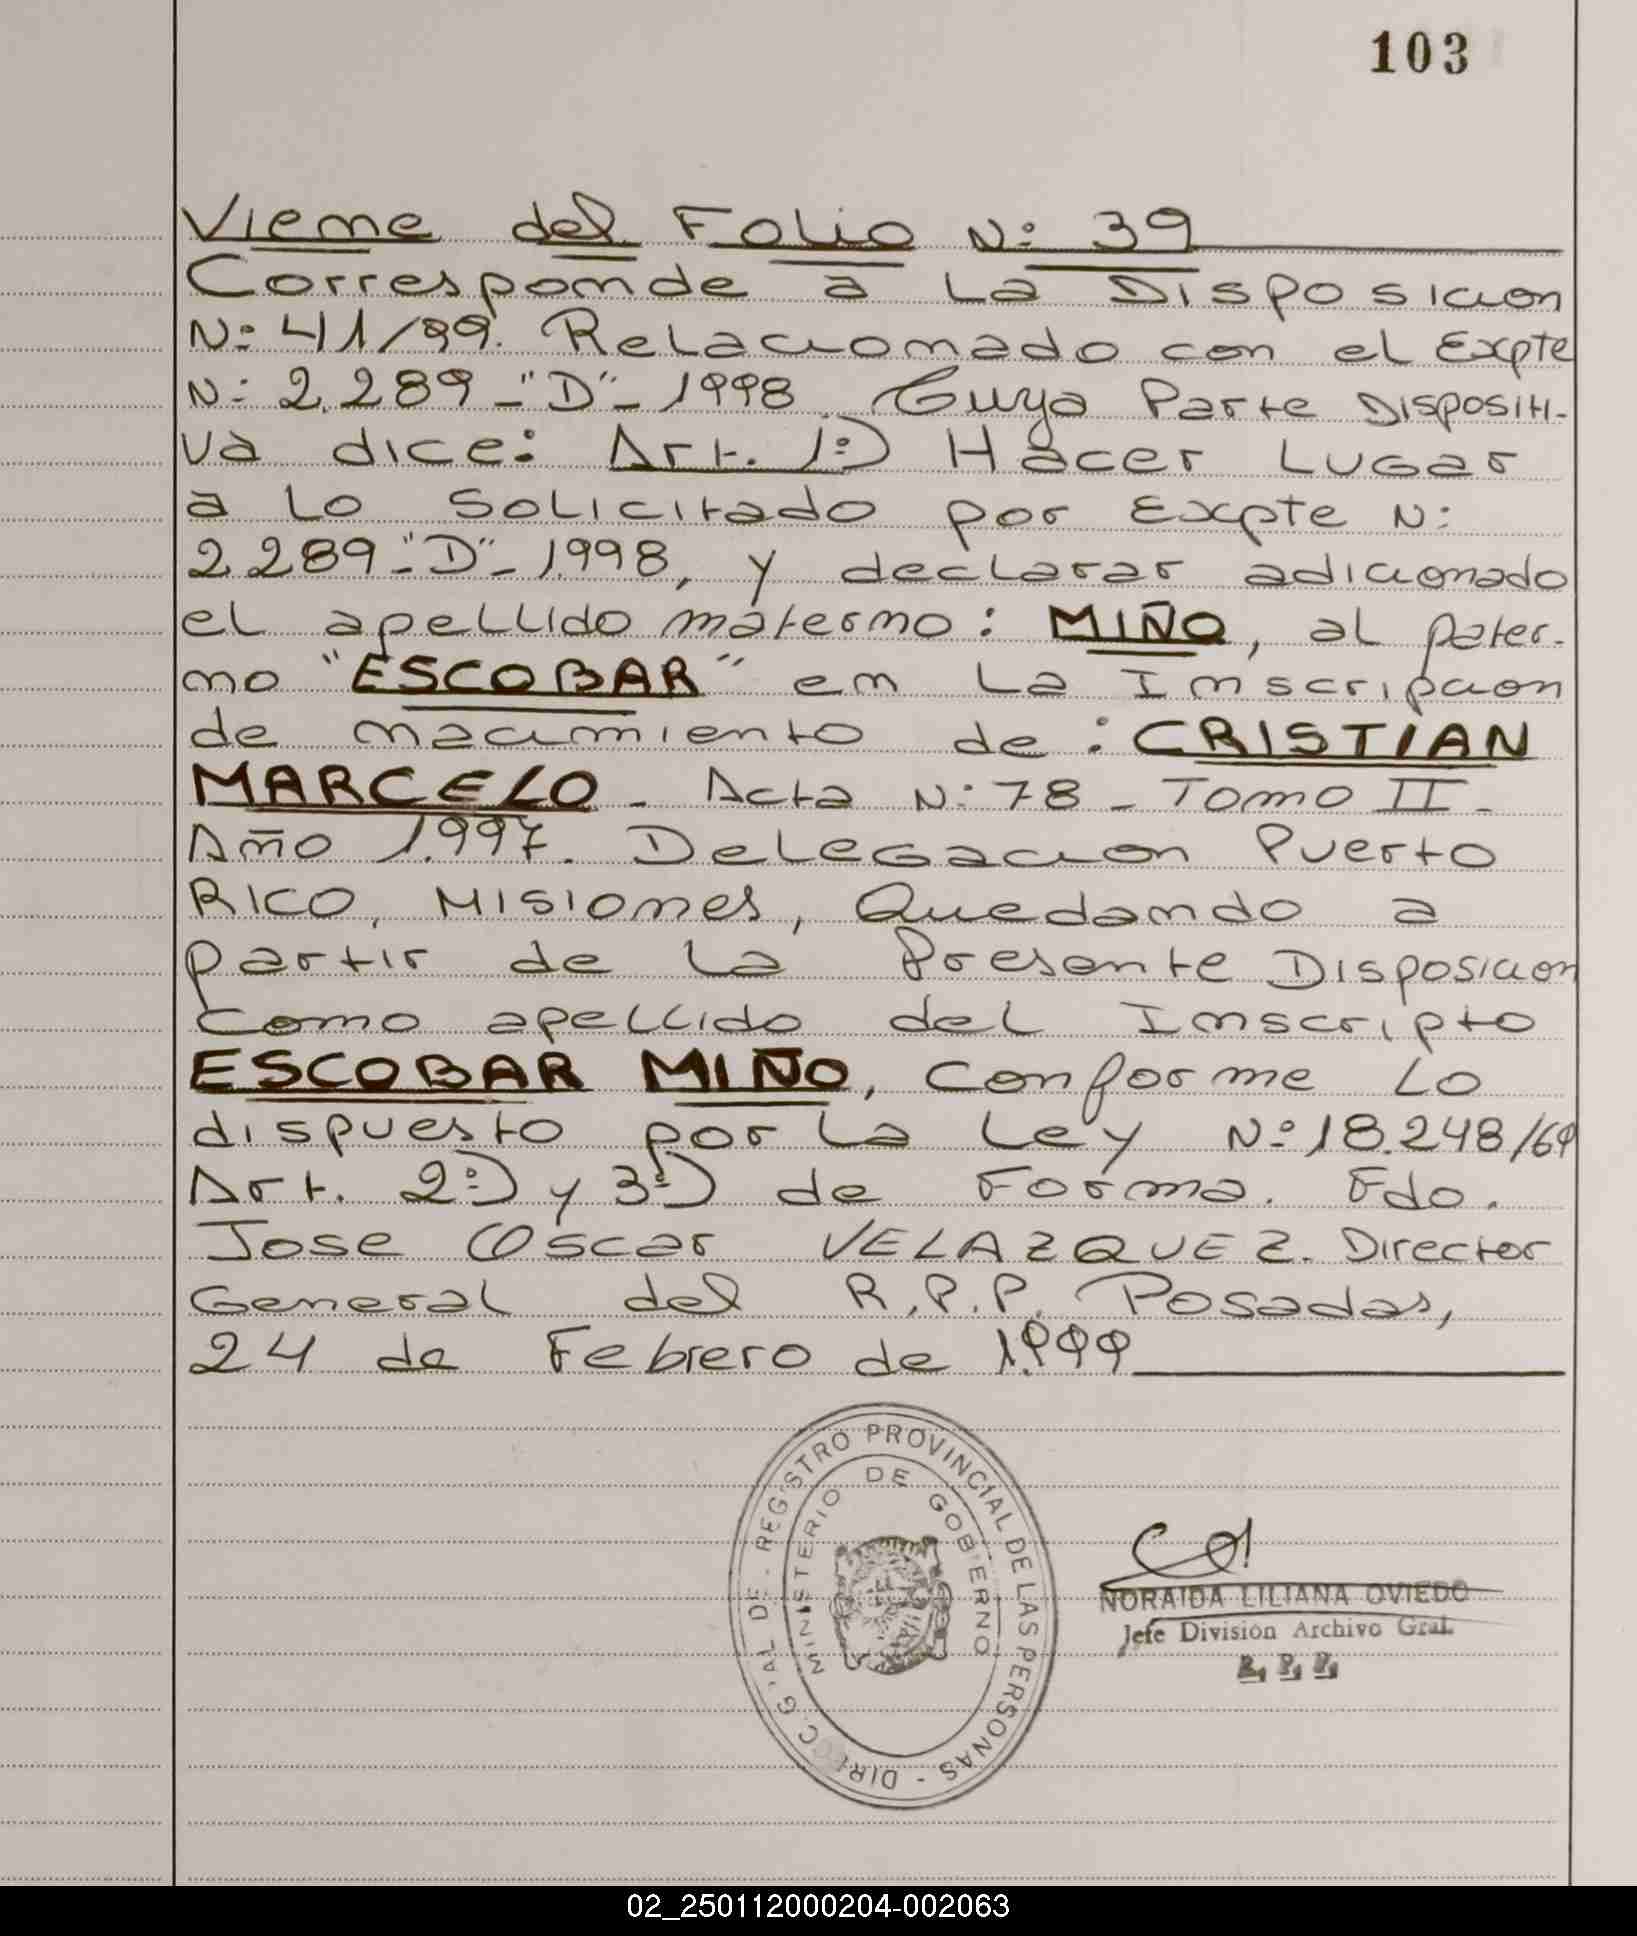 103
Viene del Folio N: 39
Corresponde a La Disposicion
N: 41/99. Relacionado con el Expte
N: 2.289-"D"-1998. Cuya Parte Dispositi-
va dice: Art. 1:) Hacer Lugar
a Lo Solicitado por Expte N:
2.289-"D"-1.998, y declarar adicionado
el apellido materno: MIÑO, al pater-
no "ESCOBAR" en La Inscripcion
de nacimiento de: CRISTIAN
MARCELO. Acta N: 78 - Tomo II -
Año 1.997. Delegacion Puerto
Rico, Misiones, Quedando a
partir de La Presente Disposicion
Como apellido del Inscripto
ESCOBAR MIÑO, Conforme Lo
dispuesto por La Ley N: 18.248/69
Art. 2:) y 3:) de Forma. Fdo.
Jose Oscar VELAZQUEZ. Director
General del R.P.P. Posadas,
24 de Febrero de 1.999
DIRECC. G'AL DE REGISTRO PROVINCIAL DE LAS PERSONAS -
MINISTERIO DE GOBIERNO
NORAIDA LILIANA OVIEDO
Jefe División Archivo Gral.
R. P. P.
02_250112000204-002063